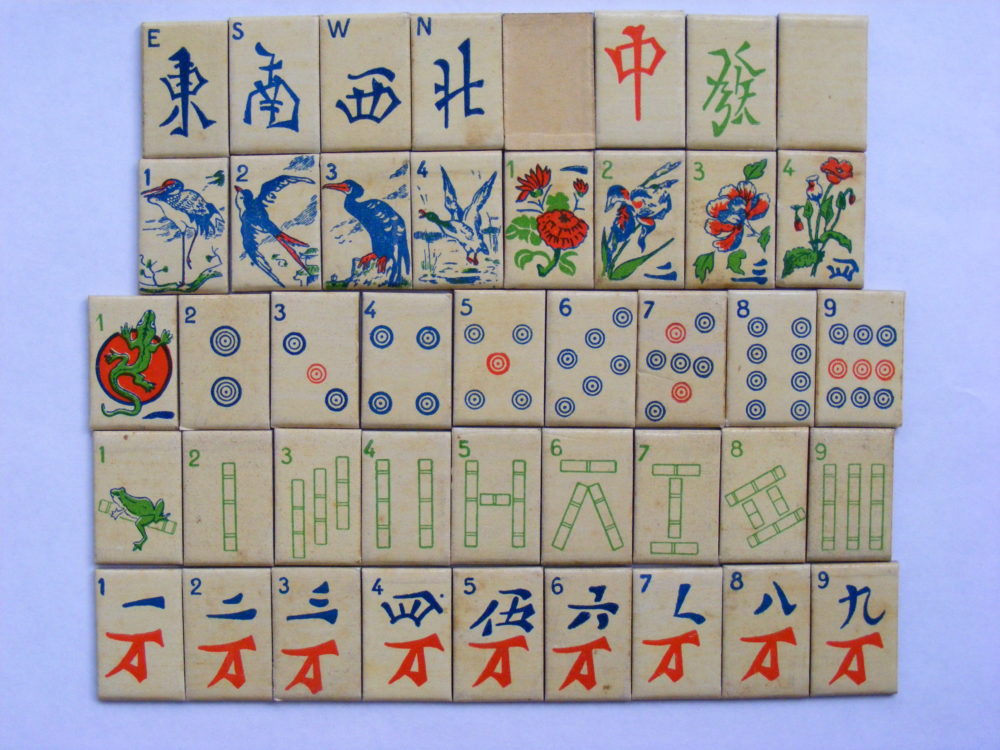 E S W N
東 南 西 北 中 發
1 2 3 4 1 2 3 4
一
二 三 四
1 2 3 4 5 6 7 8 9
一
1 2 3 4 5 6 7 8 9
1 2 3 4 5 6 7 8 9
一 二 三 四 伍 六 七 八 九
万 万 万 万 万 万 万 万 万